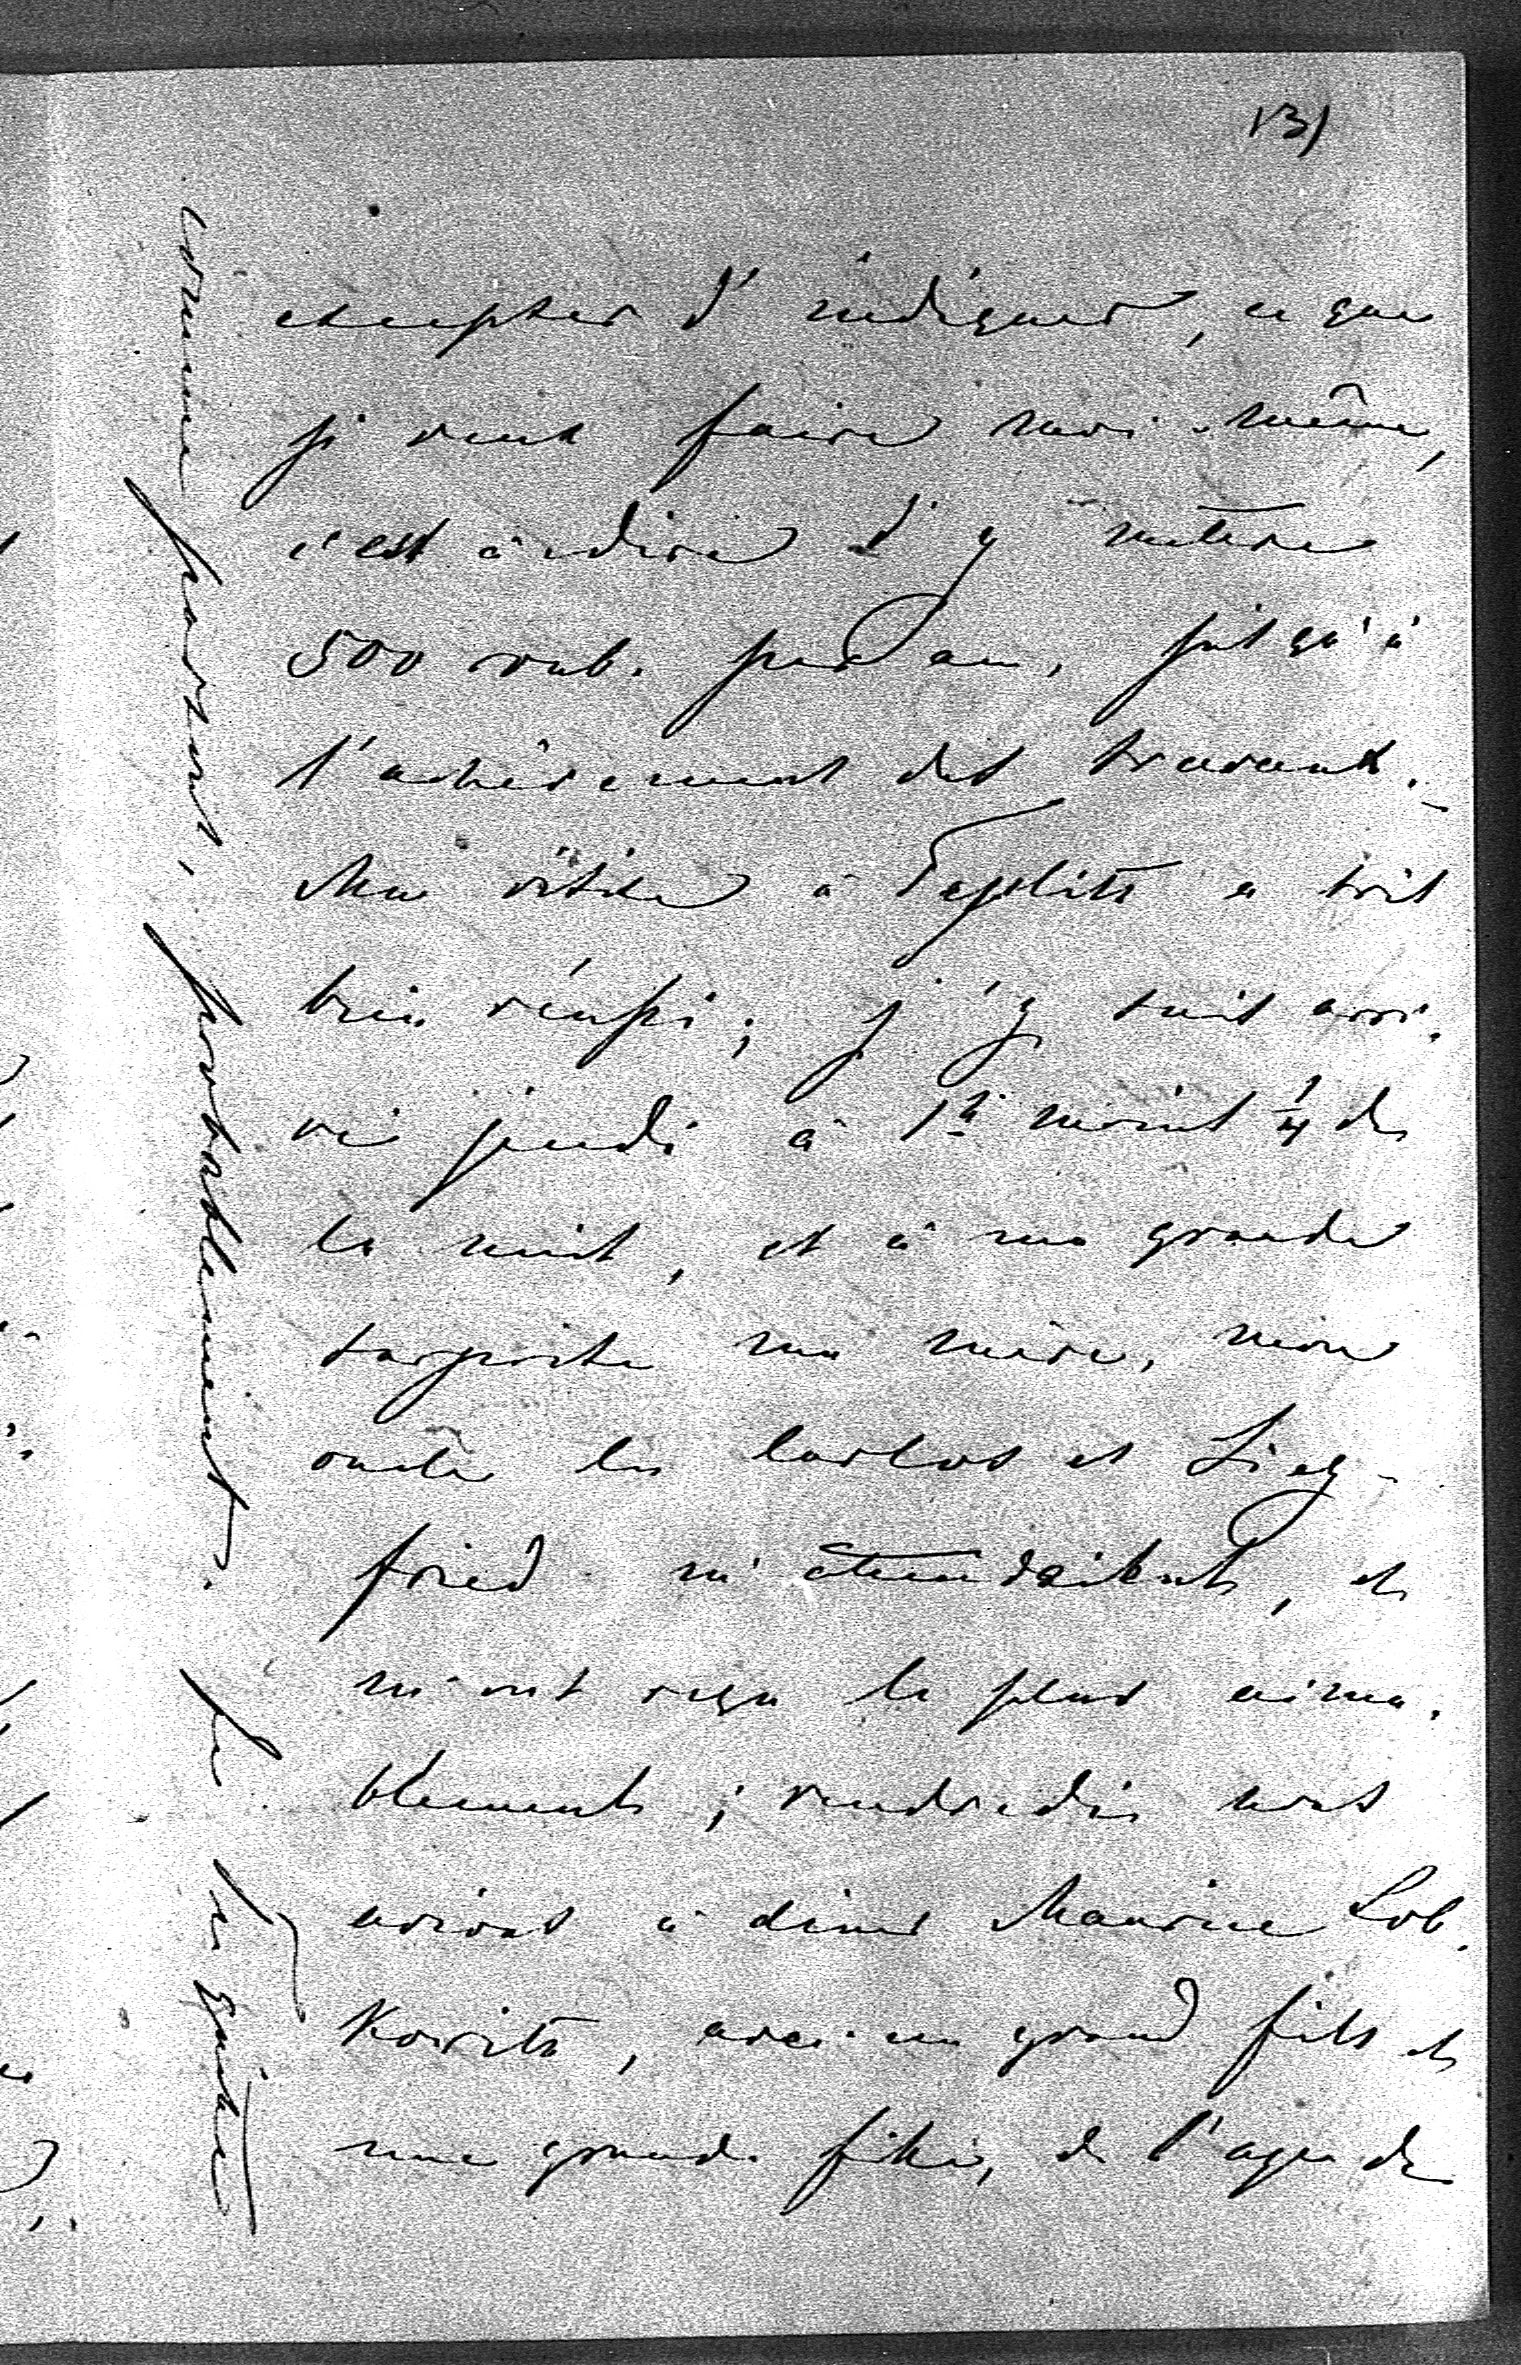 131
excepter d'indiquer, ce que
je veux faire moi-même,
c'est à dire d'y mettre
500 roub. par an, jusqu'à
l'achèvement des travaux. -
Ma visite à Teplitz a très
bien réussi; j'y suis arri-
vé jeudi à 1h moins 1/4 de
la nuit, et à ma grande
surprise ma mère, mon
oncle les Carlos et Sieg-
fried m'attendaient, et
m'ont reçu le plus aima-
blement; vendredi nous
avions à diner Maurice Lob-
kovitz, avec un grand fils et
une grande fille, de l'age de
comme partout, probablement.